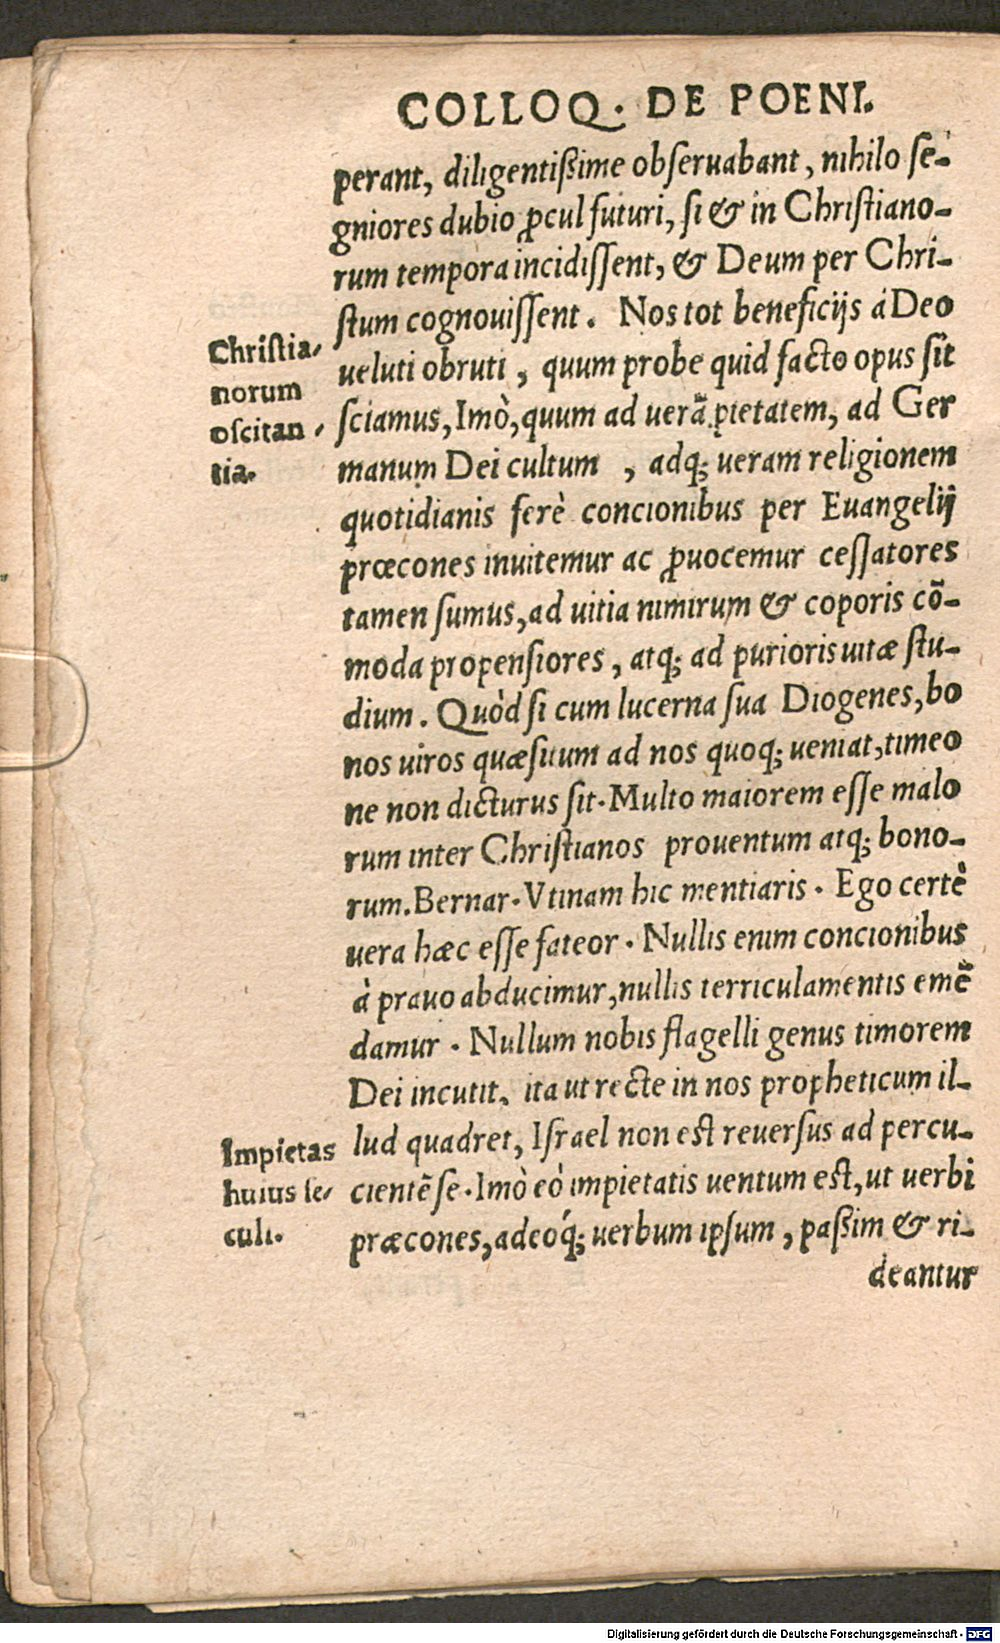 COLLOQ. DE POENI.
perant, diligentißime obſeruabant, nihilo ſe-
gniores dubio ꝓcul futuri, ſi & in Chriſtiano-
rum tempora incidiſſent, & Deum per Chri-
ſtum cognouiſſent. Nos tot beneficijs á Deo
ueluti obruti, quum probe quid facto opus ſit
ſciamus, Imò, quum ad uerã pietatem, ad Ger
manum Dei cultum, adq; ueram religionem
quotidianis ferè concionibus per Euangelij
præcones inuitemur ac ꝓuocemur ceſſatores
tamen ſumus, ad uitia nimirum & coporis cõ-
moda propenſiores, atq; ad purioris uitæ ſtu-
dium. Quòd ſi cum lucerna ſua Diogenes, bo
nos uiros quæſitum ad nos quoq; ueniat, timeo
ne non dicturus ſit. Multo maiorem eſſe malo
rum inter Chriſtianos prouentum atq; bono-
rum. Bernar. Vtinam hic mentiaris. Ego certè
uera hæc eſſe fateor. Nullis enim concionibus
à prauo abducimur, nullis terriculamentis emẽ
damur. Nullum nobis flagelli genus timorem
Dei incutit, ita ut recte in nos propheticum il-
lud quadret, Iſrael non eſt reuerſus ad percu-
cientẽ ſe. Imò eò impietatis uentum eſt, ut uerbi
præcones, adeóq; uerbum ipſum, paßim & ri-
deantur
Chriſtia-
norum
oſcitan-
tia.
Impietas
huius ſe-
culi.
Digitalisierung gefördert durch die Deutsche Forschungsgemeinschaft - DFG